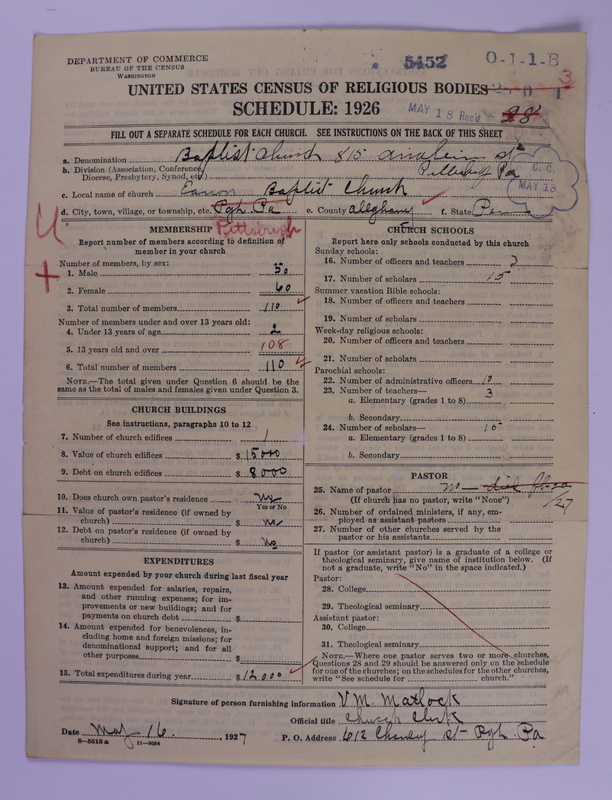 DEPARTMENT OF COMMERCE
BUREAU OF THE CENSUS
WASHINGTON
5452
O-1-1-B
3
UNITED STATES CENSUS OF RELIGIOUS BODIES
SCHEDULE: 1926
MAY 18 Rec'd
28
FILL OUT A SEPARATE SCHEDULE FOR EACH CHURCH. SEE INSTRUCTIONS ON THE BACK OF THIS SHEET
a. Denomination Baptist Church 815 Anaheim St
b. Division (Association, Conference, Diocese, Presbytery, Synod, etc.) Pa
C. C. MAY 18
c. Local name of church Baptist Church
d. City, town, village, or township, etc. Pgh. Pa
e. County allegheny
f. State Penn
Pittsburgh
MEMBERSHIP
Report number of members according to definition of member in your church
Number of members, by sex:
1. Male 50
2. Female 60
3. Total number of members 110
Number of members under and over 13 years old:
4. Under 13 years of age 2
5. 13 years old and over 108
6. Total number of members 110
NOTE.—The total given under Question 6 should be the same as the total of males and females given under Question 3.
CHURCH BUILDINGS
See instructions, paragraphs 10 to 12
7. Number of church edifices 1
8. Value of church edifices $ 15000
9. Debt on church edifices $ 8000
10. Does church own pastor's residence no
Yes or No
11. Value of pastor's residence (if owned by church) $ no
12. Debt on pastor's residence (if owned by church) $ No
EXPENDITURES
Amount expended by your church during last fiscal year
13. Amount expended for salaries, repairs, and other running expenses; for improvements or new buildings; and for payments on church debt $
14. Amount expended for benevolences, including home and foreign missions; for denominational support; and for all other purposes $
15. Total expenditures during year $ 12000
CHURCH SCHOOLS
Report here only schools conducted by this church
Sunday schools:
16. Number of officers and teachers 2
17. Number of scholars 15
Summer vacation Bible schools:
18. Number of officers and teachers
19. Number of scholars
Week-day religious schools:
20. Number of officers and teachers
21. Number of scholars
Parochial schools:
22. Number of administrative officers
23. Number of teachers— 3
a. Elementary (grades 1 to 8)
b. Secondary
24. Number of scholars— 15
a. Elementary (grades 1 to 8)
b. Secondary
PASTOR
25. Name of pastor
(If church has no pastor, write "None")
/27
26. Number of ordained ministers, if any, employed as assistant pastors
27. Number of other churches served by the pastor or his assistants
If pastor (or assistant pastor) is a graduate of a college or theological seminary, give name of institution below. (If not a graduate, write "No" in the space indicated.)
Pastor:
28. College
29. Theological seminary
Assistant pastor:
30. College
31. Theological seminary
NOTE.—Where one pastor serves two or more churches, Questions 28 and 29 should be answered only on the schedule for one of the churches; on the schedules for the other churches, write "See schedule for church."
Signature of person furnishing information V. M. Matlock
Official title Church Clerk
Date May 16, 1927
P. O. Address 612 St Pgh. Pa
8-5518a 11-9084